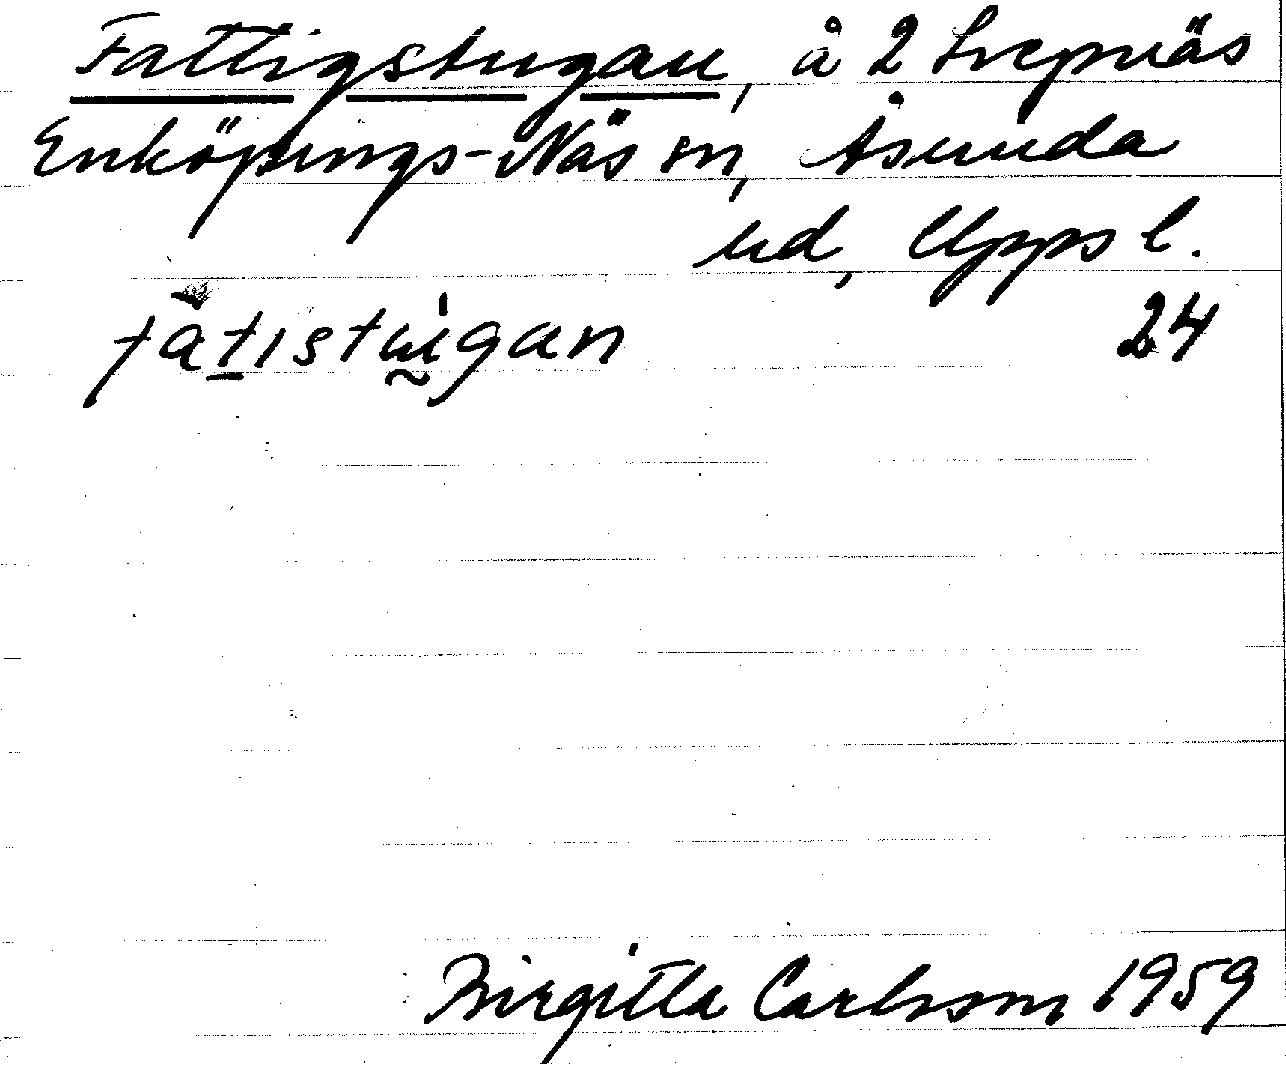 Fattigstugan, å 2 Svepnäs
Enköpings-Näs sn, Åsunda
hd, Upps l.
fàtıstṵ̍gan 24
Birgitta Carlsson 1959